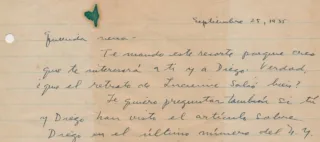 Septiembre 25, 1935
Querida nena-
Te mando este recorte porque creo
que te interesará a ti y a Diego. Verdad,
¿que el retrato de Lucienne salió bien?
Te quiero preguntar también si tú
y Diego han visto el artículo sobre
Diego en el último número del N.Y.